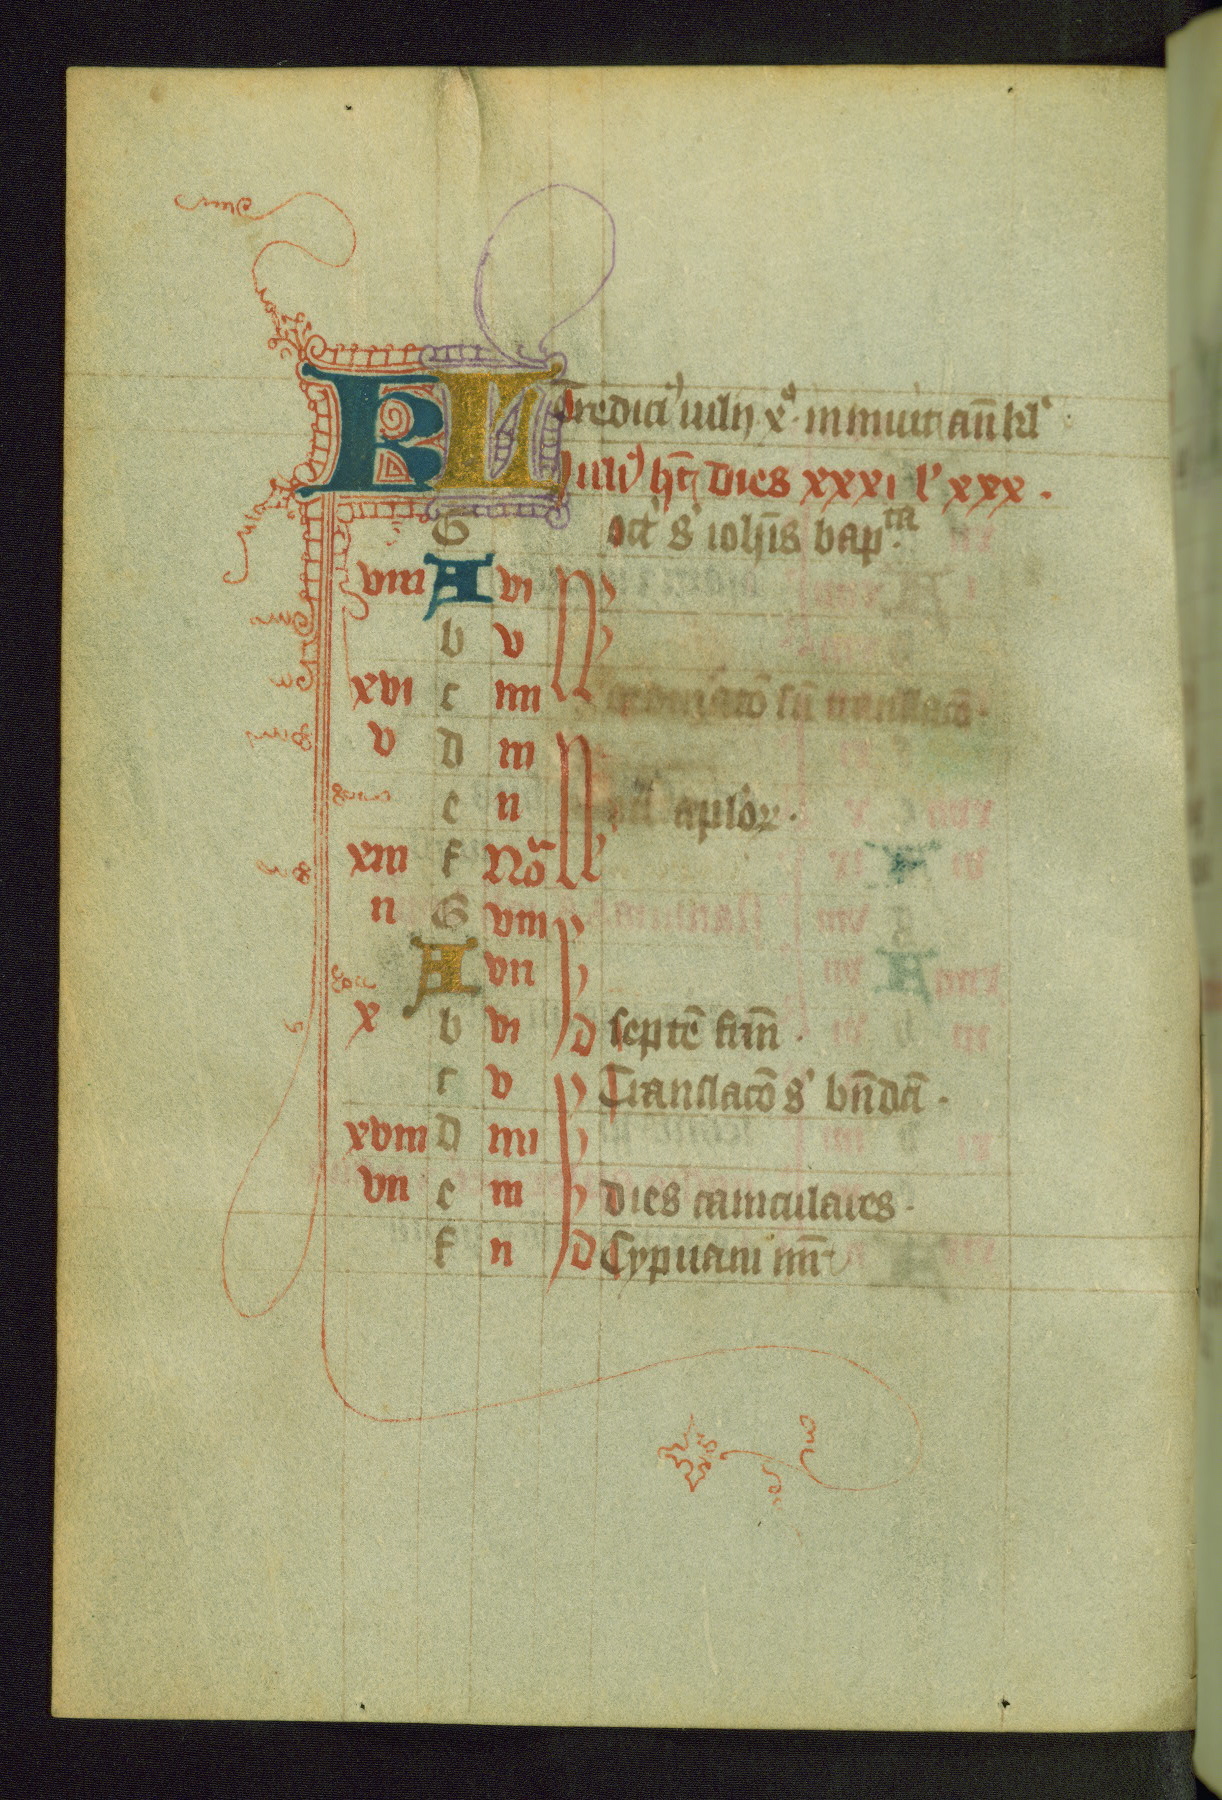 KL Tredecimus iulii x. innuit ante kl'
Iulius ht dies xxxi l' xxx.
G oct' s' ioh̅is bap^ta.
viii A vi N
b v
xvi c iiii translac̅o.
v d iii N
e ii oct' ap'lor.
xiii f No̅
ii G viii I
A vii
x b vi D septe̅ frm̅.
c v I Translac̅o s' bn̅dc̅i.
xviii d iiii
vii e iii dies caniculares.
f ii D Cypriani mr̅